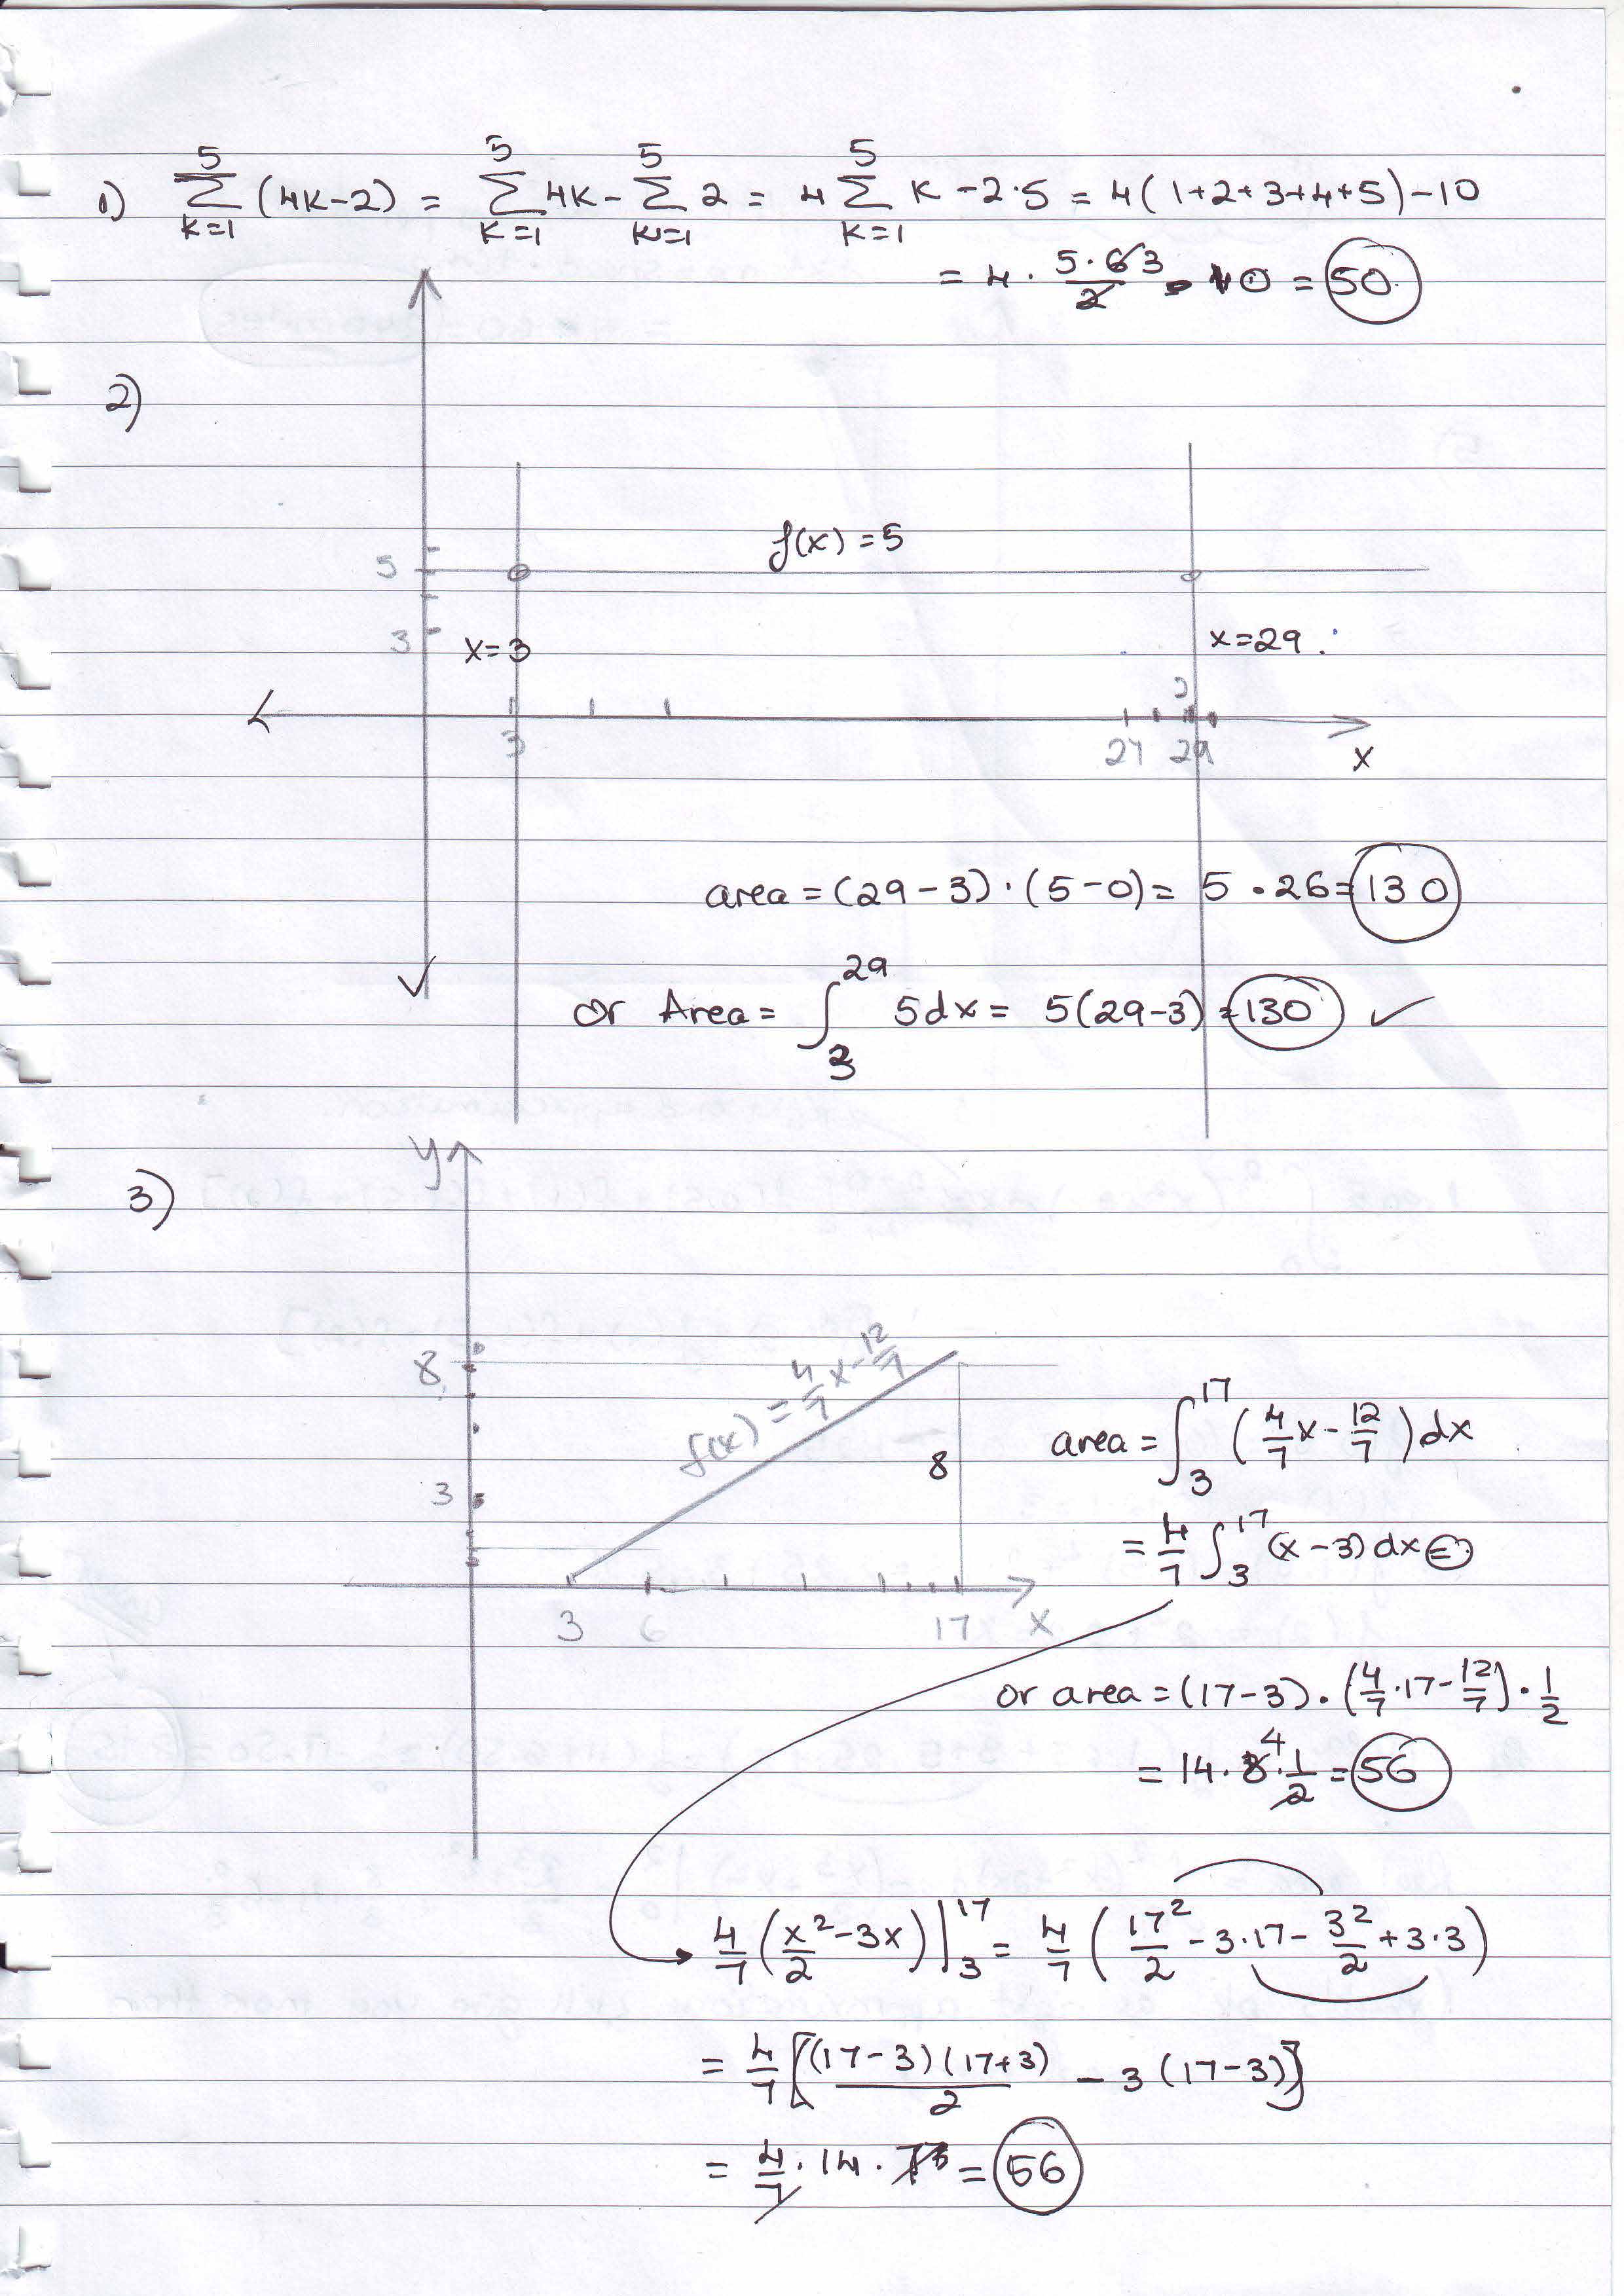 1) ∑_{k=1}^{5} (4k-2) = ∑_{k=1}^{5} 4k - ∑_{k=1}^{5} 2 = 4 ∑_{k=1}^{5} k - 2·5 = 4(1+2+3+4+5)-10
= 4 · 5·6 3 / 2 - 10 = 50
2)
f(x) = 5
5
3
x=3
x=29
3
24 29
x
area = (29-3)·(5-0) = 5·26 = 130
or Area = ∫_{3}^{29} 5dx = 5(29-3) = 130 ✓
y
3)
f(x) = 4/7 x - 12/7
8
area = ∫_{3}^{17} (4/7 x - 12/7) dx
8
3
= 4/7 ∫_{3}^{17} (x-3) dx =
3 6 17 x
or area = (17-3)·(4/7·17 - 12/7)·1/2
= 14·8 4·1/2 = 56
4/7 (x²/2 - 3x) |_{3}^{17} = 4/7 (17²/2 - 3·17 - 3²/2 + 3·3)
= 4/7 [(17-3)(17+3)/2 - 3(17-3)]
= 4/7 · 14 · = 56